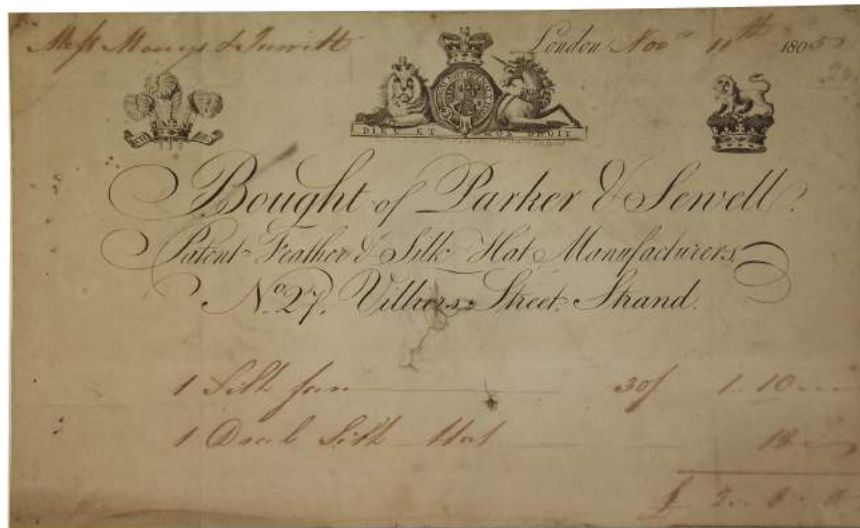 Mess London Nov 11th 1805
DIEU ET MON DROIT
Bought of Parker & Sewell.
Patent Feather & Silk Hat Manufacturers,
No. 27, Villiers Street, Strand.
1 Silk 30/ 1. 10
1 Silk Hat 18
£ 2 8 0